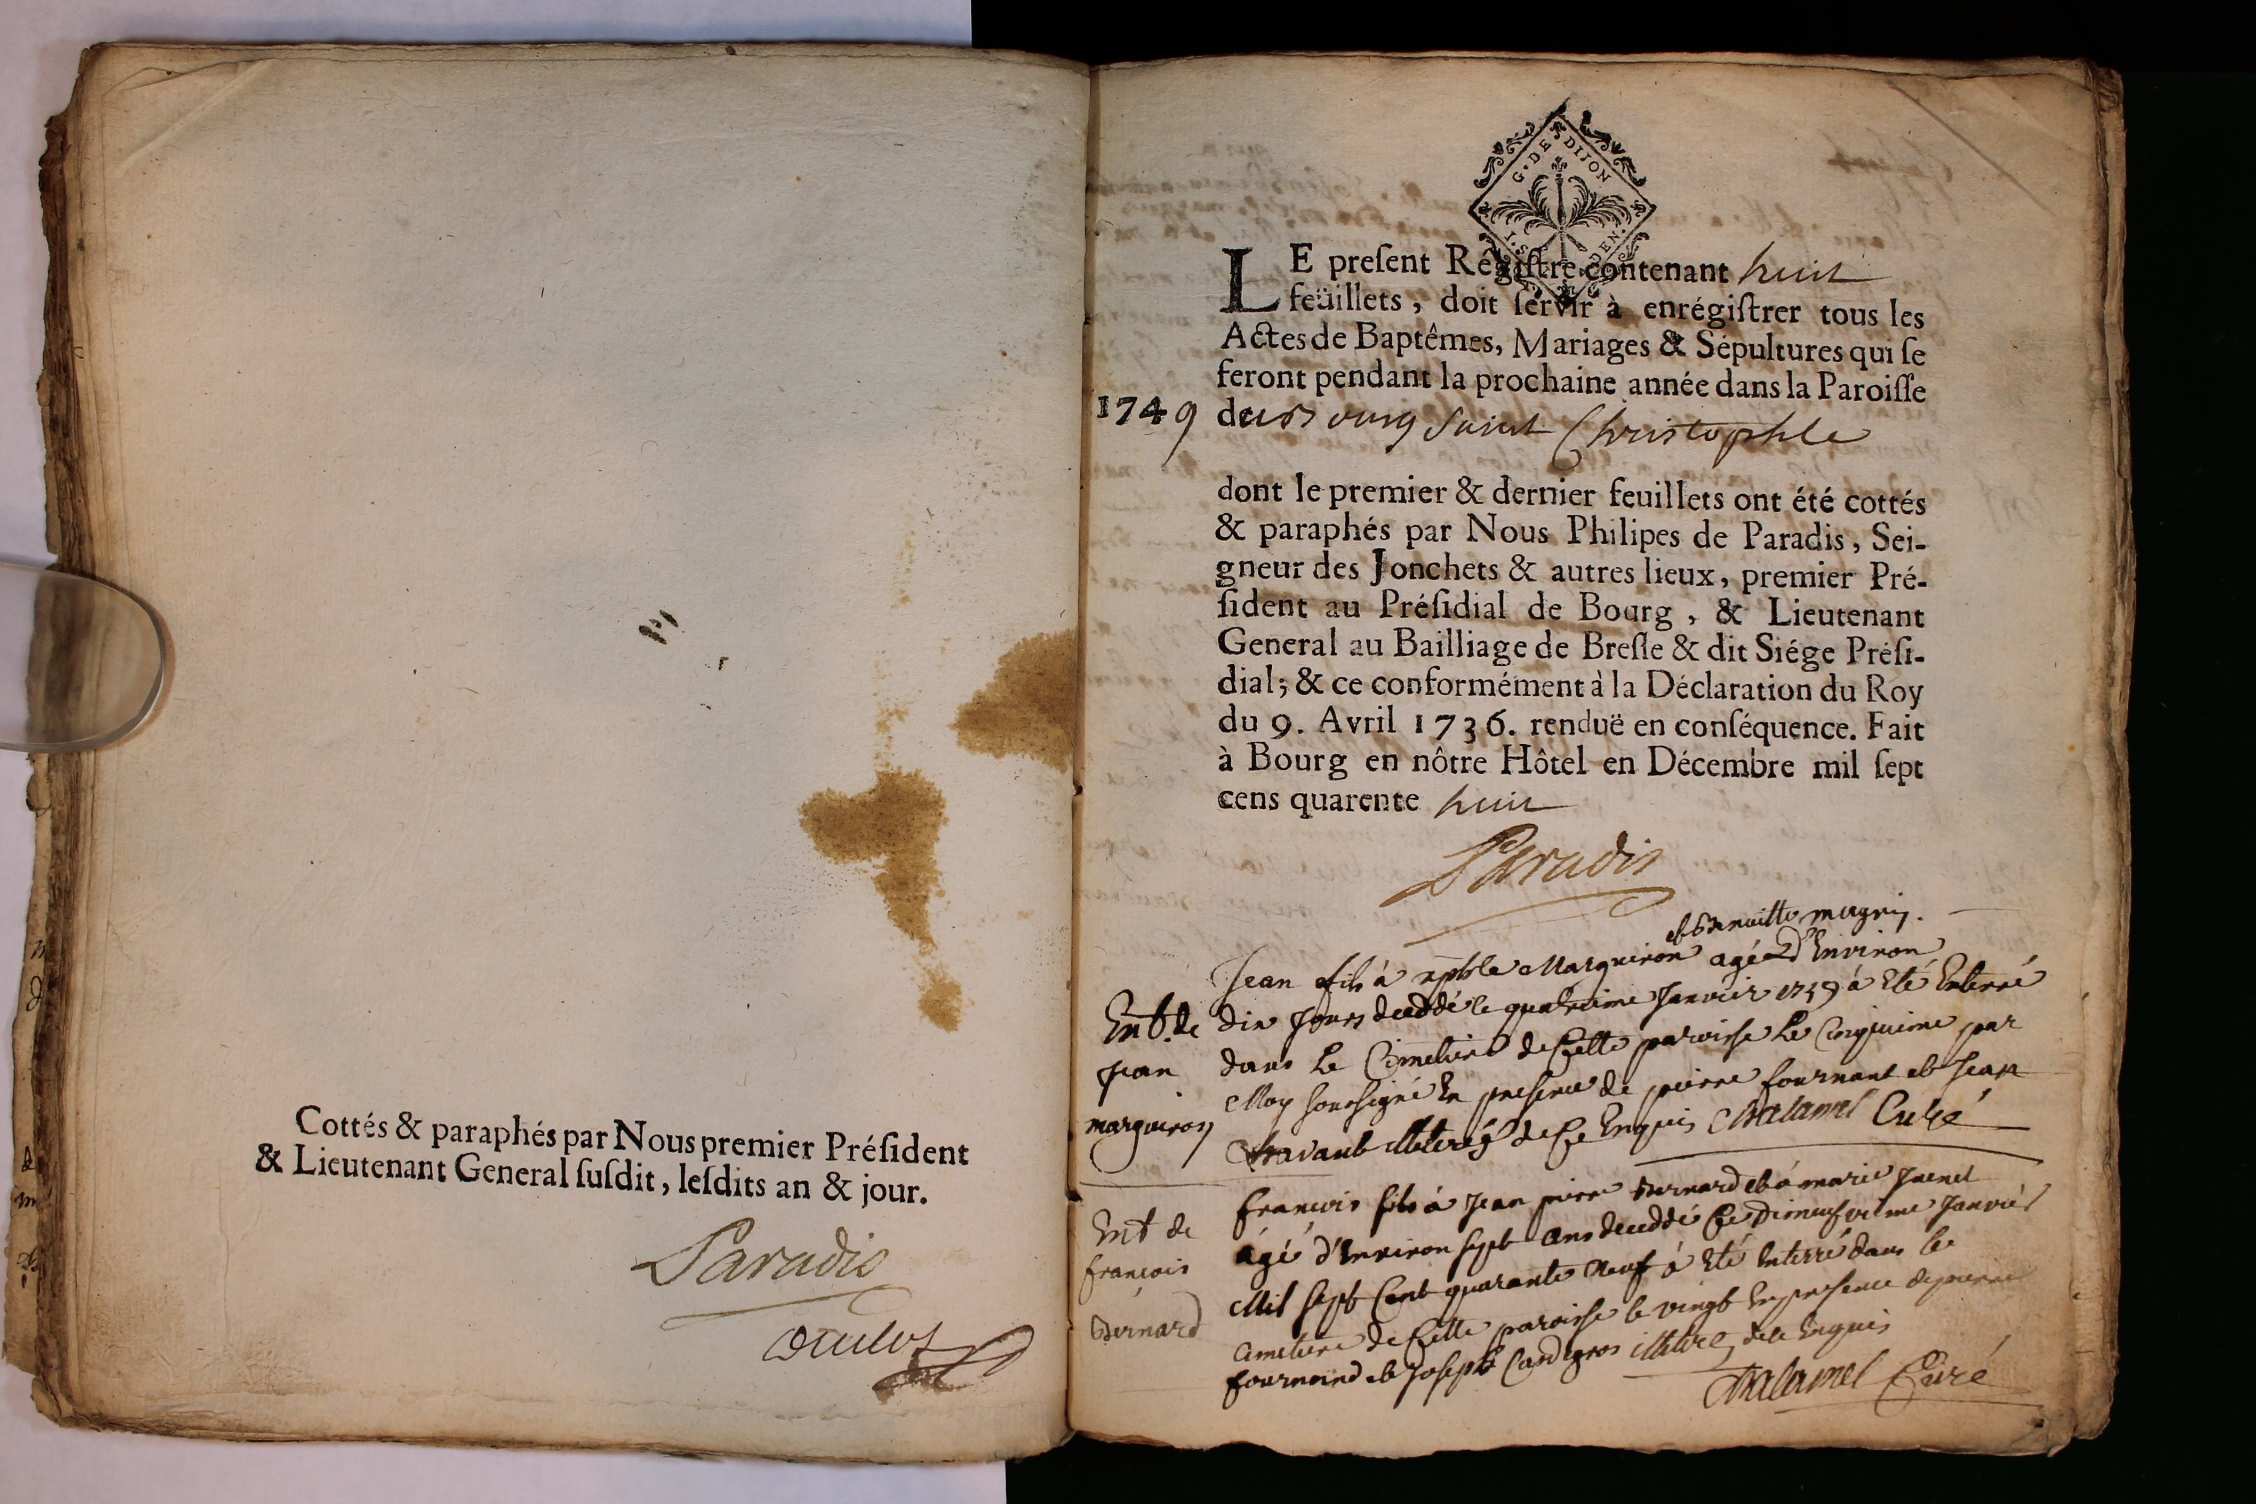 Cottés & paraphés par Nous premier Président
& Lieutenant General ſuſdit, leſdits an & jour.
Paradis
G. DE DIJON
LE preſent Régiſtre contenant huit
feüillets, doit ſervir à enrégiſtrer tous les
Actes de Baptêmes, Mariages & Sépultures qui ſe
feront pendant la prochaine année dans la Paroiſſe
1749 du Bourg Saint Christophle
dont le premier & dernier feuillets ont été cottés
& paraphés par Nous Philipes de Paradis, Sei-
gneur des Jonchets & autres lieux, premier Pré-
ſident au Préſidial de Bourg, & Lieutenant
General au Bailliage de Breſſe & dit Siége Préſi-
dial; & ce conformément à la Déclaration du Roy
du 9. Avril 1736. renduë en conſéquence. Fait
à Bourg en nôtre Hôtel en Décembre mil ſept
cens quarente huit
Paradis
Ent. de
Jean
marguiron
et Benoitte magnin.
Jean fils à xphle Marguiron agé d'Environ
dix Jours decedé le quatrieme Janvier 1749 à Eté Enterré
dans Le Cimetiere de Cette paroisse Le Cinquieme par
Moy soussigné En presence de pierre fournant et Jean
travant illiterés de Ce Enquis Chalamel Curé
Ent de
françois
Bernard
françois fils à Jean pierre Bernard et à marie Juenet
âgé d'Environ sept ans decedé Ce Dixneufvieme Janvier
Mil sept Cent quarante Neuf à Eté Enterré dans le
Cimetiere de Cette paroisse le vingt En presence de pierre
fournand et Joseph Cardegros illiterés de ce Enquis
Chalamel Curé